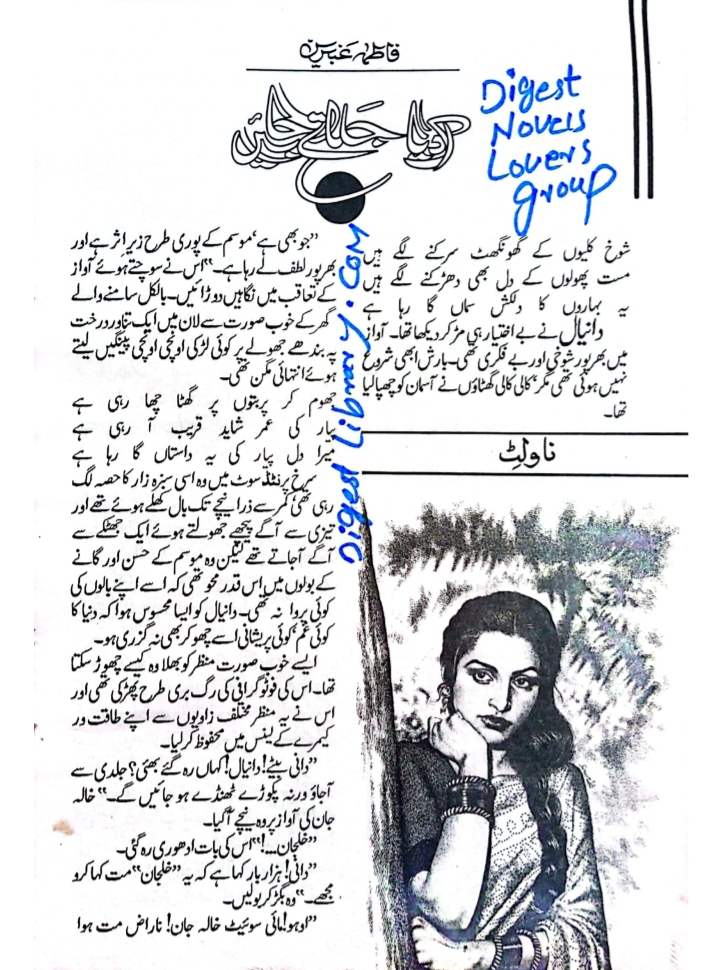 فاطمہ عنبرین
اک دیا جلاتے جائیں
Digest
Novels
Lovers
group
شوخ کلیوں کے گھونگھٹ سرکنے لگے ہیں
مست پھولوں کے دل بھی دھڑکنے لگے ہیں
یہ بہاروں کا دلکش سماں گا رہا ہے
دانیال نے بے اختیار ہی مڑ کر دیکھا تھا۔ آواز
میں بھرپور شوخی اور بے فکری تھی۔ بارش ابھی شروع
نہیں ہوئی تھی مگر کالی کالی گھٹاؤں نے آسمان کو چھپالیا
تھا۔
ناولٹ
”جو بھی ہے‘ موسم کے پوری طرح زیرِ اثر ہے اور
بھرپور لطف لے رہا ہے۔“ اس نے سوچتے ہوئے آواز
کے تعاقب میں نگاہیں دوڑائیں۔ بالکل سامنے والے
گھر کے خوب صورت سے لان میں ایک تناور درخت
پہ بندھے جھولے پر کوئی لڑکی اونچی اونچی پینگیں لیتے
ہوئے انتہائی مگن تھی۔
جھوم کر پربتوں پر گھٹا چھا رہی ہے
پیار کی عمر شاید قریب آ رہی ہے
میرا دل پیار کی یہ داستاں گا رہا ہے
سرخ پرنٹڈ سوٹ میں وہ اسی سبزہ زار کا حصہ لگ
رہی تھی‘ کمر سے ذرا نیچے تک بال کھلے ہوئے تھے اور
تیزی سے آگے پیچھے جھولتے ہوئے ایک جھٹکے سے
آگے آجاتے تھے لیکن وہ موسم کے حسن اور گانے
کے بولوں میں اس قدر محو تھی کہ اسے اپنے بالوں کی
کوئی پروا نہ تھی۔ دانیال کو ایسا محسوس ہوا کہ دنیا کا
کوئی غم‘ کوئی پریشانی اسے چھو کر بھی نہ گزری ہو۔
ایسے خوب صورت منظر کو بھلا وہ کیسے چھوڑ سکتا
تھا۔ اس کی فوٹوگرافی کی رگ بری طرح پھڑکی تھی اور
اس نے یہ منظر مختلف زاویوں سے اپنے طاقت ور
کیمرے کے لینس میں محفوظ کرلیا۔
”دانی بیٹے! دانیال! کہاں رہ گئے بھئی؟ جلدی سے
آجاؤ ورنہ پکوڑے ٹھنڈے ہو جائیں گے۔“ خالہ
جان کی آواز پر وہ نیچے آگیا۔
”خلجان...!“ اس کی بات ادھوری رہ گئی۔
”دانی! ہزار بار کہا ہے کہ یہ ”خلجان“ مت کہا کرو
مجھے۔“ وہ بگڑ کر بولیں۔
”اوہو! مائی سوئیٹ خالہ جان! ناراض مت ہوا
Digest Library.com